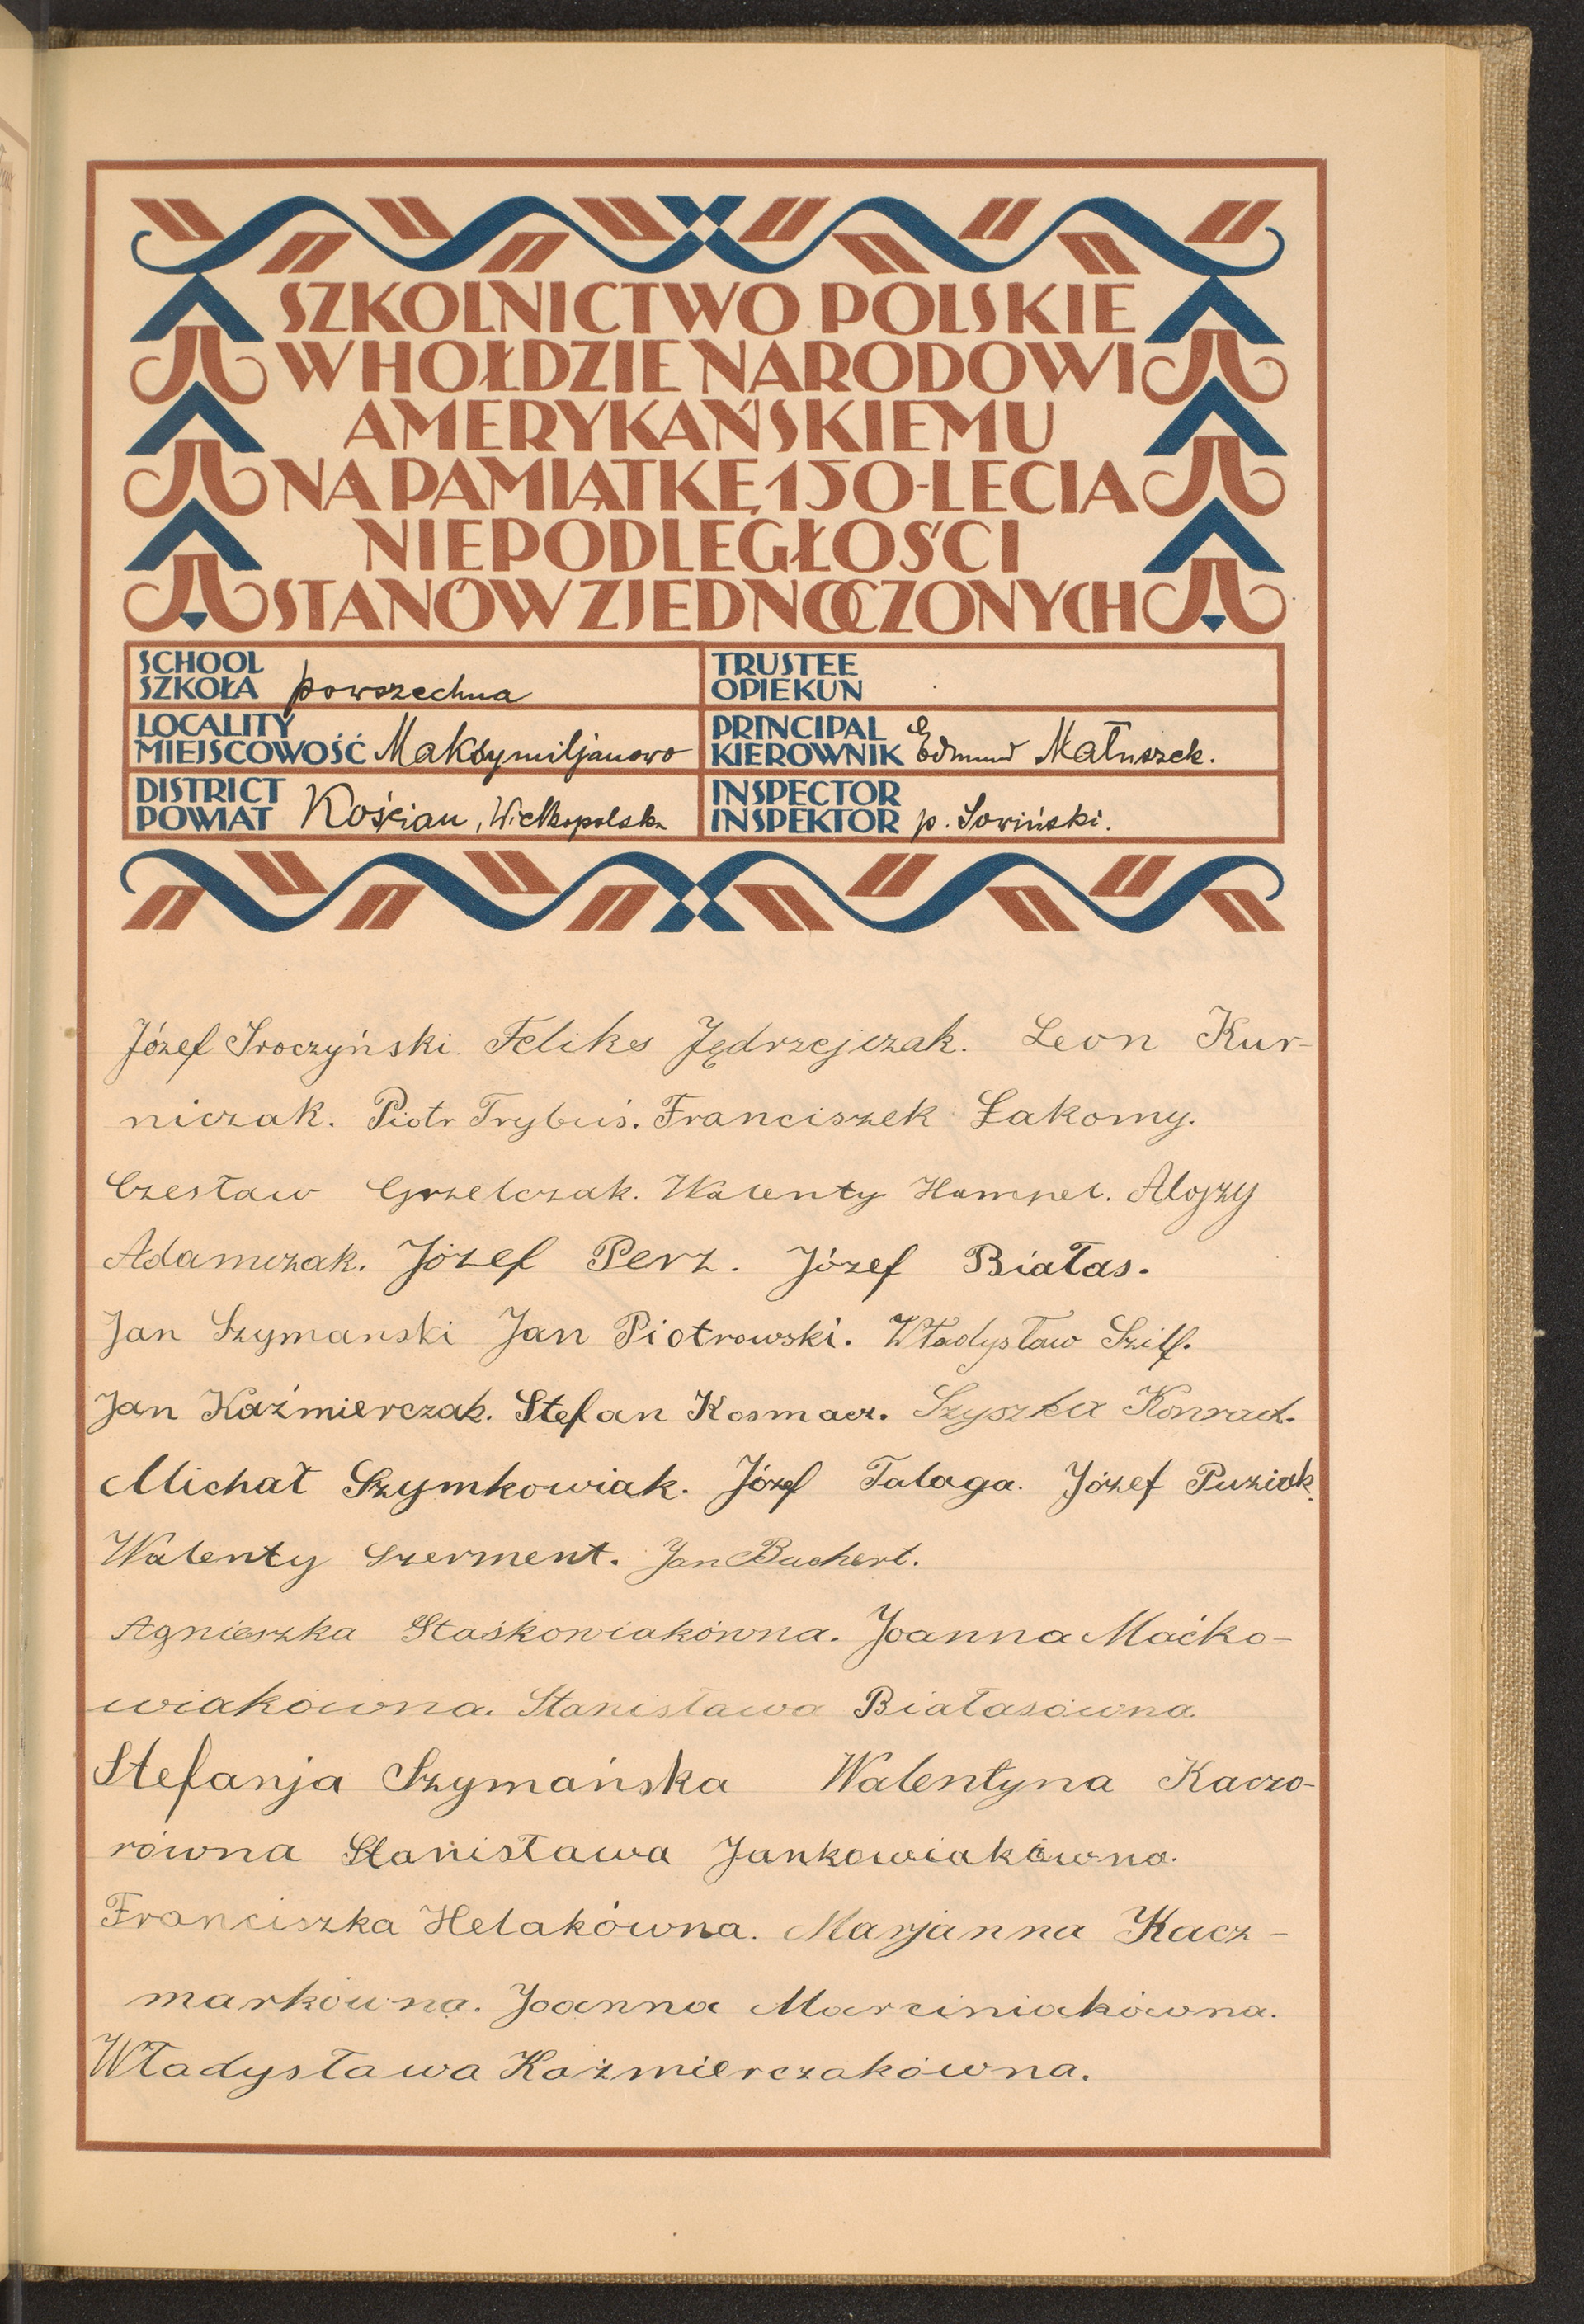 SZKOLNICTWO POLSKIE
W HOŁDZIE NARODOWI
AMERYKAŃSKIEMU
NA PAMIĄTKĘ 150-LECIA
NIEPODLEGŁOŚCI
STANÓW ZJEDNOCZONYCH
SCHOOL
SZKOŁA powszechna
TRUSTEE
OPIEKUN
LOCALITY
MIEJSCOWOŚĆ Maksymiljanowo
PRINCIPAL
KIEROWNIK Edmund Matuszek.
DISTRICT
POWIAT Kościan, Wielkopolska
INSPECTOR
INSPEKTOR p. Sowiński.
Józef Sroczyński. Feliks Jędrzejczak. Leon Kur-
niczak. Piotr Trybuś. Franciszek Łakomy.
Czesław Grzelczak. Walenty Hampel. Alojzy
Adamczak. Józef Perz. Józef Białas.
Jan Szymanski Jan Piotrowski. Władysław Szilf.
Jan Kaźmierczak. Stefan Kosmacz. Szyszka Konrad.
Michał Szymkowiak. Józef Talaga. Józef Puziak.
Walenty Szerment. Jan Buchert.
Agnieszka Staśkowiakówna. Joanna Maćko-
wiakówna. Stanisława Białasówna.
Stefanja Szymańska Walentyna Kaczo-
równa Stanisława Jankowiakówna.
Franciszka Helakówna. Marjanna Kacz-
markówna. Joanna Marciniakówna.
Władysława Kaźmierczakówna.